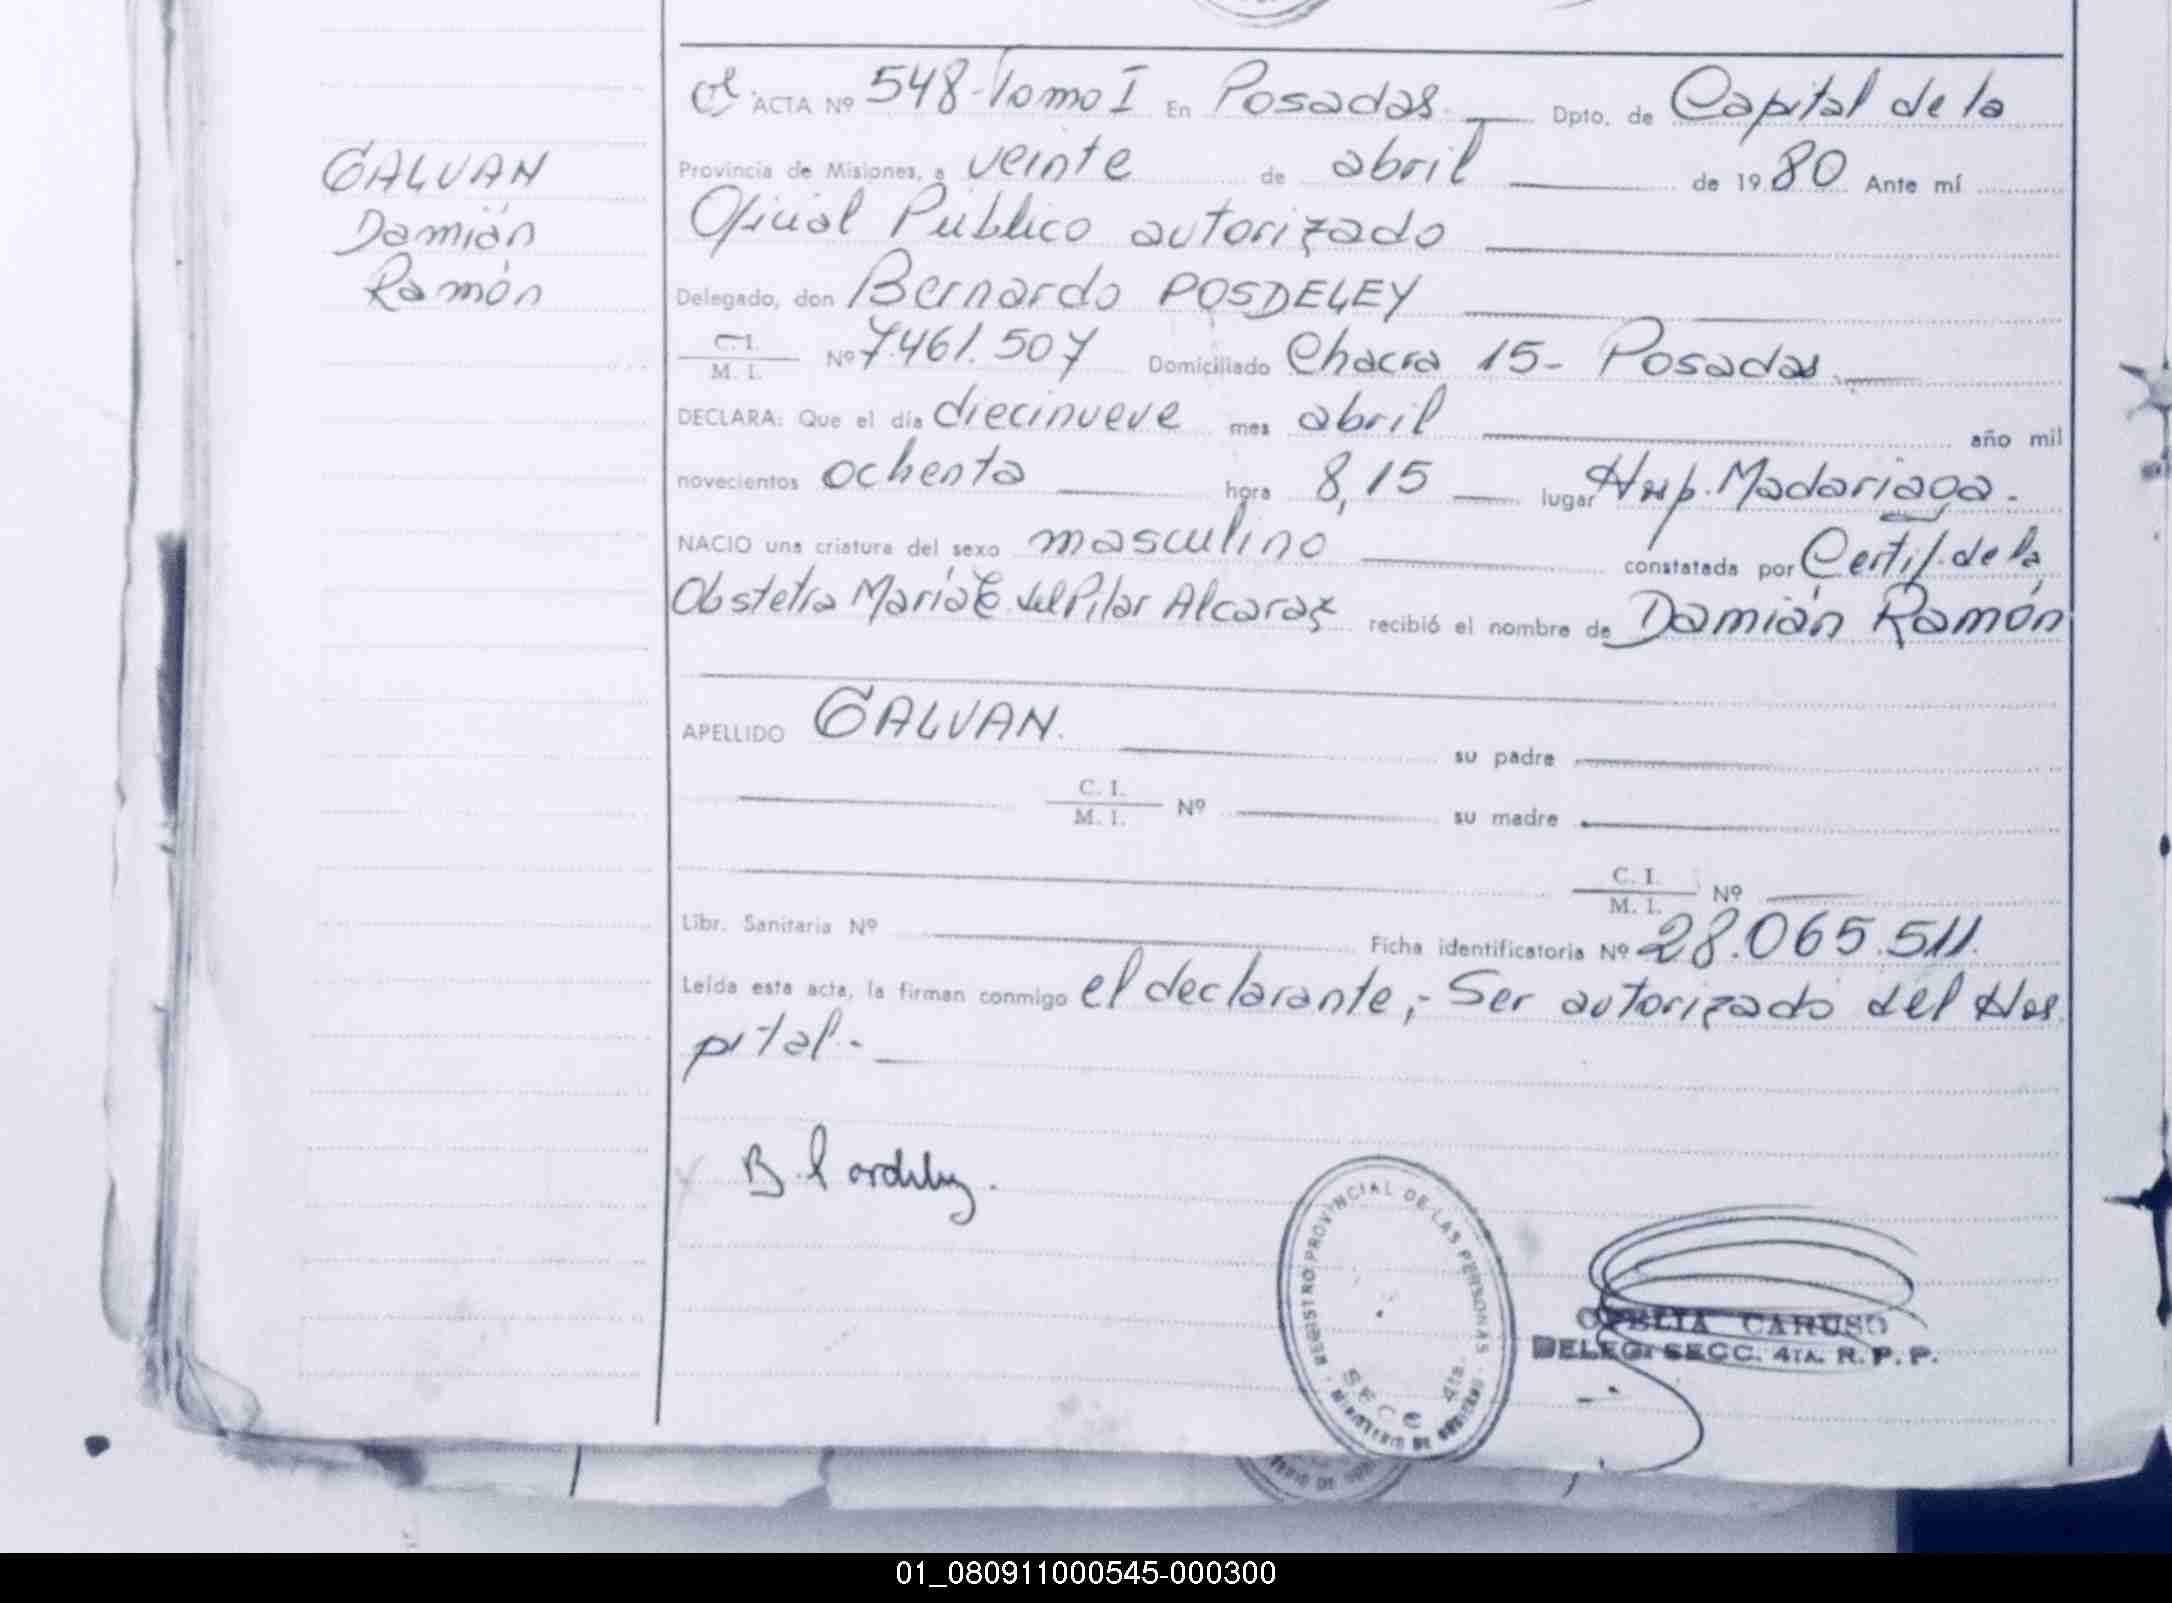 ACTA Nº 548-Tomo I En Posadas. Dpto. de Capital de la
GALVAN
Damián
Ramón
Provincia de Misiones, a veinte de abril de 1980 Ante mí
Oficial Público autorizado
Delegado, don Bernardo POSDELEY
C. I.
M. I. Nº 7.461.507 Domiciliado Chacra 15- Posadas
DECLARA: Que el día diecinueve mes abril año mil
novecientos ochenta hora 8,15 lugar Hosp. Madariaga.
NACIO una criatura del sexo masculino constatada por Certif. de la
Obstetra María E. del Pilar Alcaraz recibió el nombre de Damián Ramón
APELLIDO GALVAN. su padre
C. I.
M. I. Nº su madre
C. I.
M. I. Nº
Libr. Sanitaria Nº Ficha identificatoria Nº 28.065.511.
Leída esta acta, la firman conmigo el declarante,- Ser autorizado del Hos
pital.-
REGISTRO PROVINCIAL DE LAS PERSONAS
SECC 4ta.
MINISTERIO DE
OFELIA CARUSO
DELEG. SECC. 4TA. R. P. P.
01_080911000545-000300